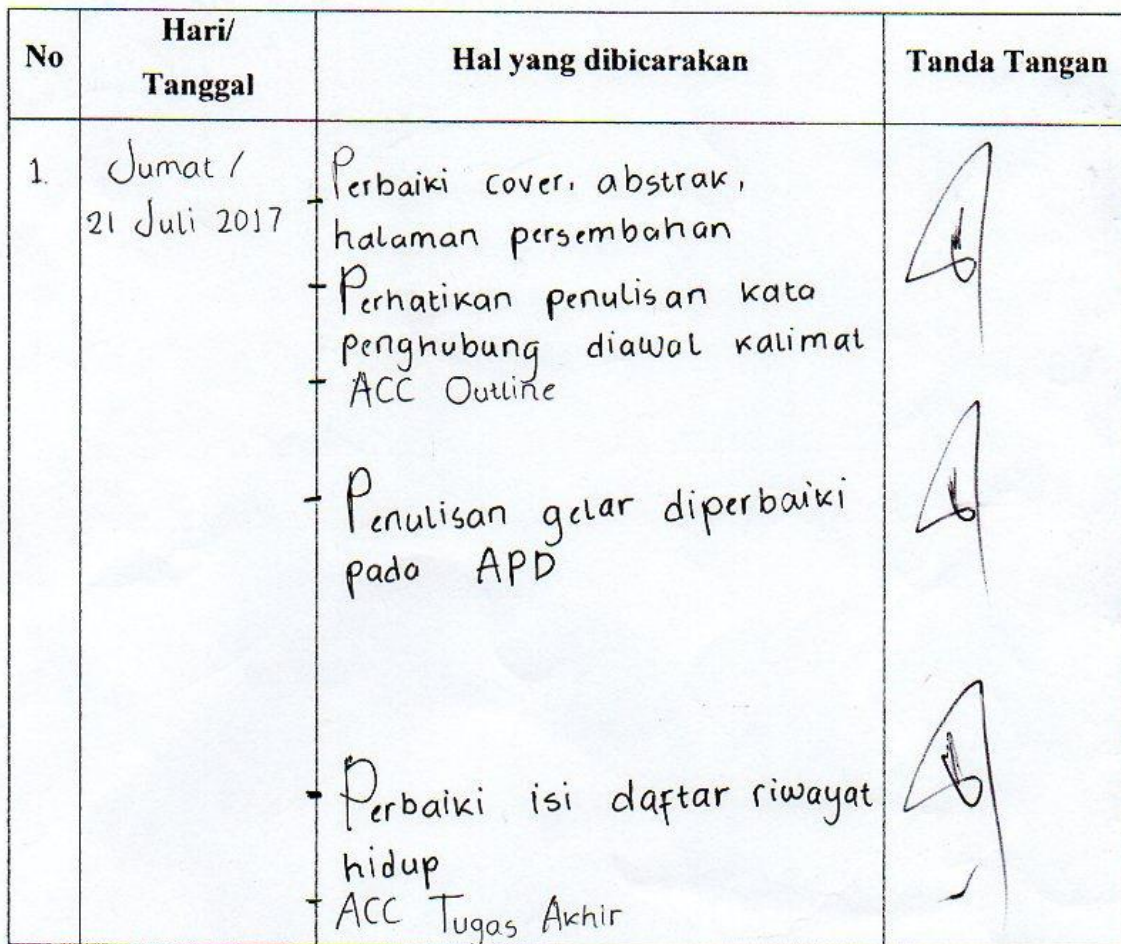 No
Hari/
Tanggal
Hal yang dibicarakan
Tanda Tangan
1.
Jumat /
21 Juli 2017
- Perbaiki cover, abstrak,
halaman persembahan
- Perhatikan penulisan kata
penghubung diawal kalimat
- ACC Outline
- Penulisan gelar diperbaiki
pada APD
- Perbaiki isi daftar riwayat
hidup
- ACC Tugas Akhir